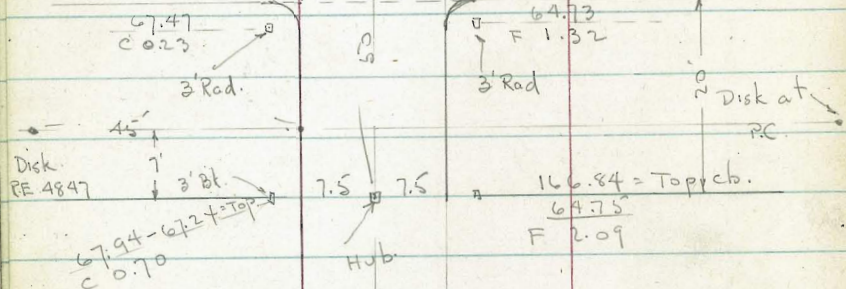 67.47
C 0.23
3' Rad.
64.73
F 1.32
3' Rad
20
Disk at
P.C.
45'
7'
Disk
P.E 4847
3' Bk.
7.5 7.5
166.84 = Top cb.
64.75
F 2.09
67.94 - 67.24 = Top
C 0.70
Hub.